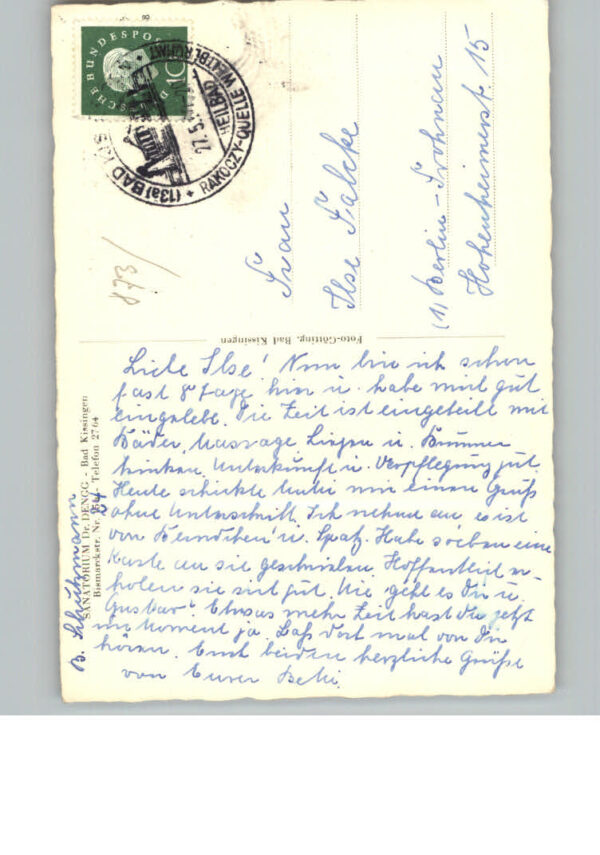 DEUTSCHE BUNDESPOST
10
(13a) BAD KISSINGEN
HEILBAD
RAKOCZY-QUELLE WELTBERÜHMT
27.5.
873/
Frau
Ilse Falcke
(1) Berlin-Frohnau
Hohenheimerst. 15
Foto-Götting, Bad Kissingen
SANATORIUM Dr. DENGG - Bad Kissingen
Bismarckstr. Nr. 24 Telefon 2764
B. Schutzmann
Liebe Ilse! Nun bin ich schon
fast 8 Tage hier u. habe mich gut
eingelebt. Die Zeit ist eingeteilt mit
Bäder, Massage Liegen u. Brunnen
trinken. Unterkunft u. Verpflegung gut.
Heute schickte mir einen Gruß
ohne Unterschrift. Ich nehme an es ist
von u. Spatz. Habe soeben eine
Karte an sie geschrieben. Hoffentlich er-
holen sie sich gut. Wie geht es Dir u.
Gustav? Etwas mehr Zeit hast du jetzt
im Moment ja. Laß dort mal von Dir
hören. Euch beiden herzliche Grüße
von Eurer